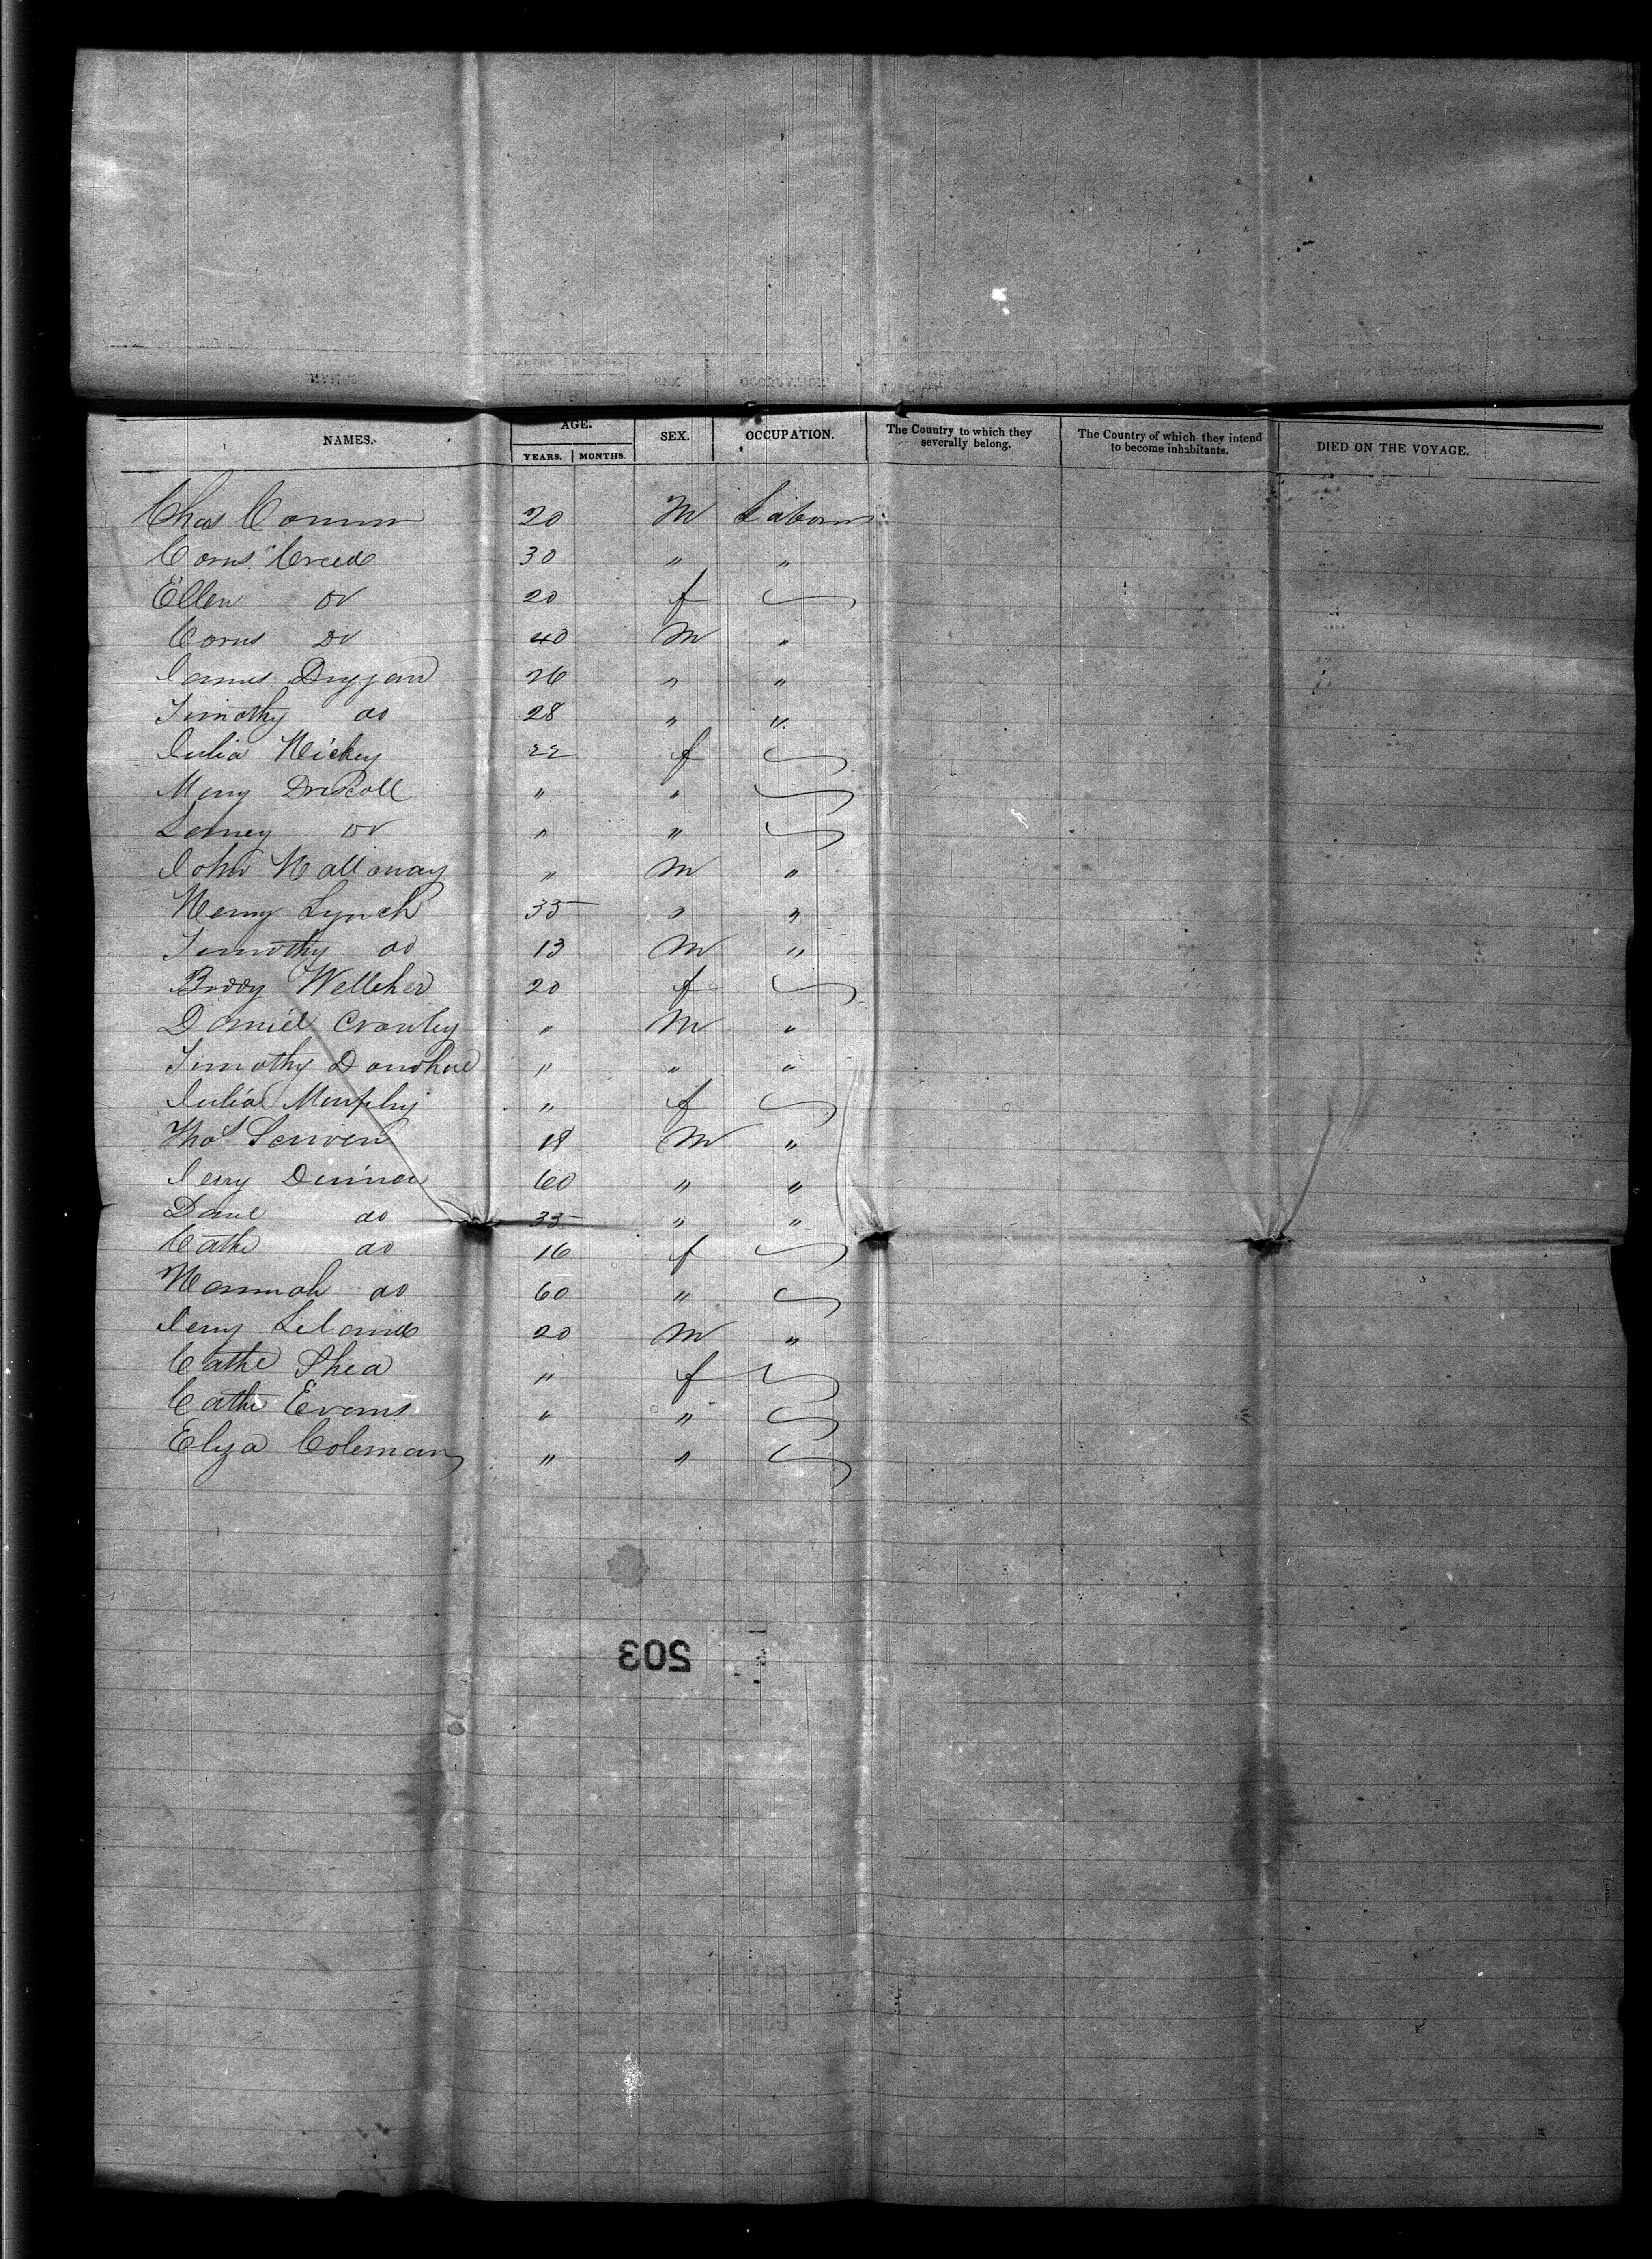 NAMES. AGE. YEARS. MONTHS. SEX. OCCUPATION. The Country to which they severally belong. The Country of which they intend to become inhabitants. DIED ON THE VOYAGE.
Chas 20 M Laborer
Corns. Creed 30 " "
Ellen Do 20 f
Corns Do 40 M "
James Duggan 26 " "
Timothy do 28 " "
Julia Hickey 22 f
Mary Driscoll " "
Do " "
John Hallonay " M "
Lynch 35 " "
Timothy do 13 M "
Biddy 20 f
Daniel Crowley " M "
Timothy Donohue " " "
Julia Murphy " f
Thos Scriven 18 M "
Jerry 60 " "
Danl do 35 " "
Cathe do 16 f
Hannah do 60 "
Jerry Leland 20 M "
Cathe Shea " f
Cathe Evans " "
Eliza Coleman " "
203